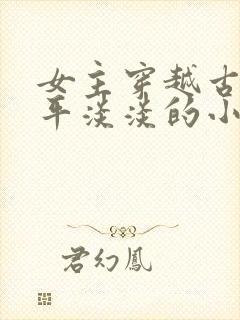 女主穿越古
平淡淡的小
君幻鳳